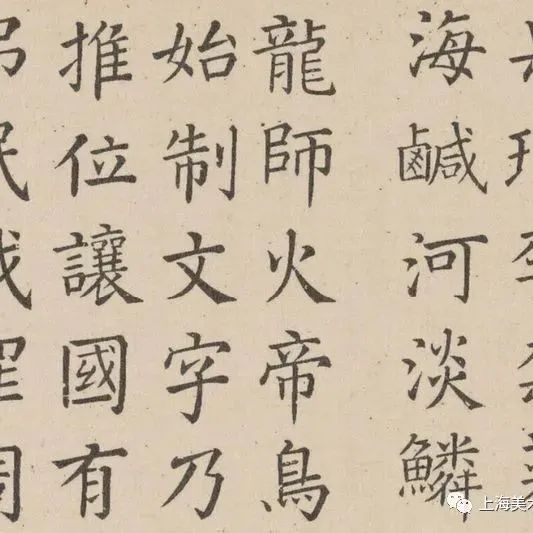 海鹹河淡鱗
龍師火帝鳥
始制文字乃
推位讓國有
民罪周
上海美